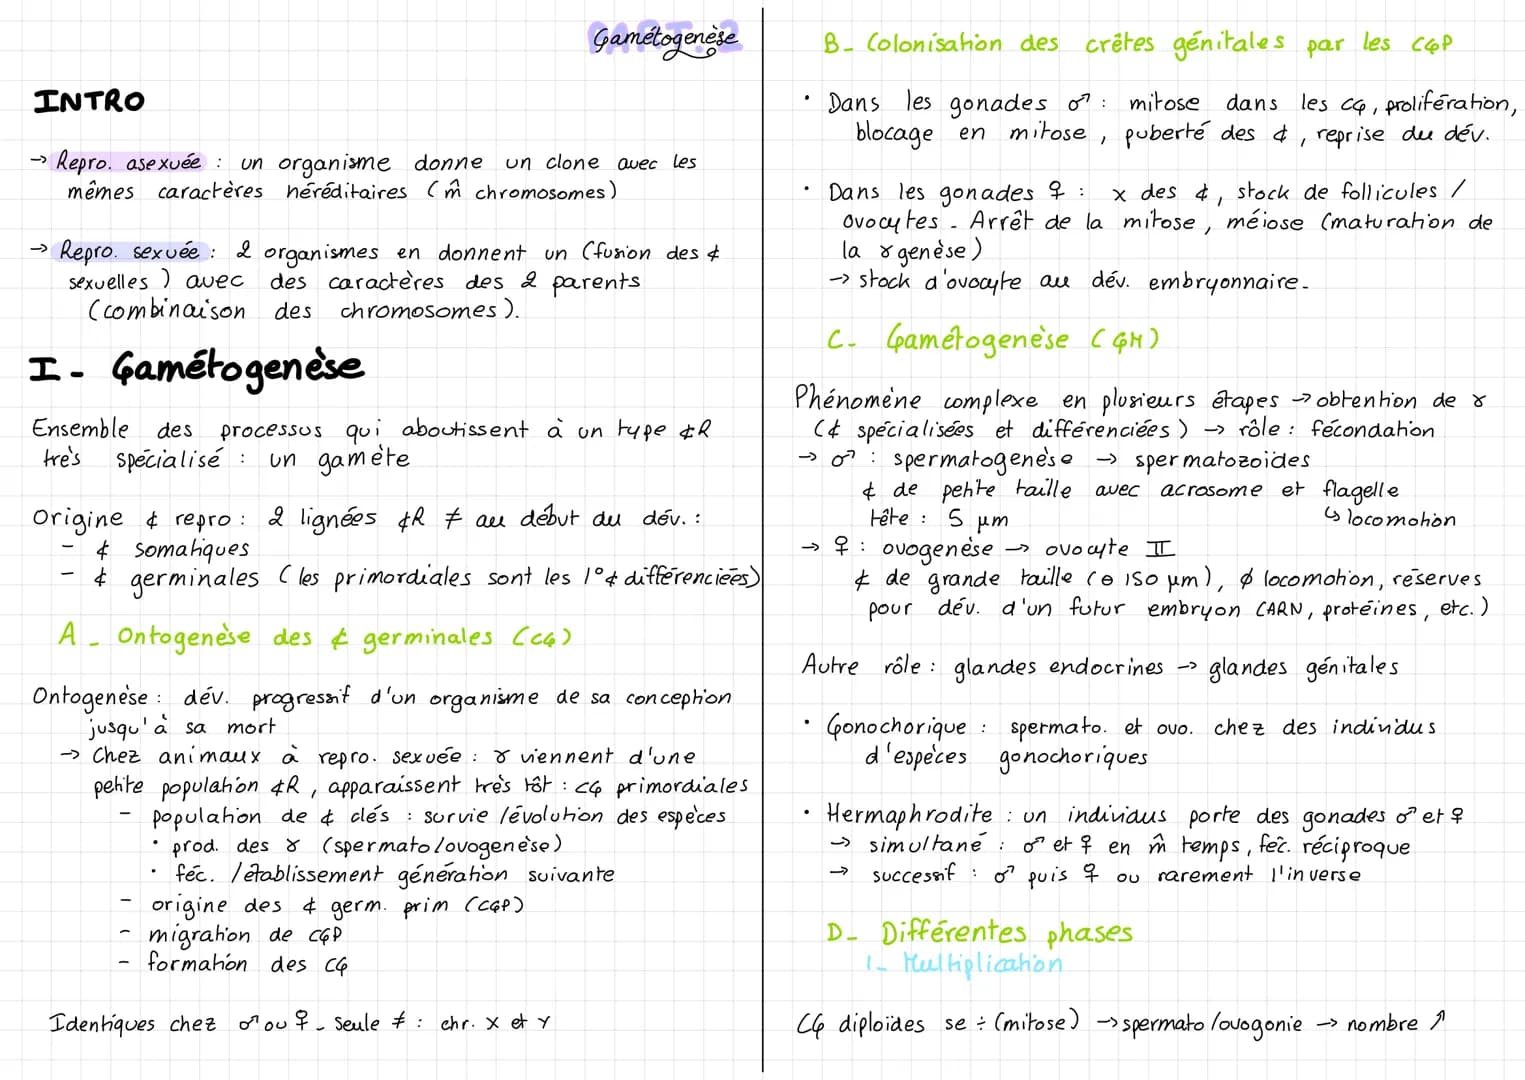 PART.2
Gamétogenèse
INTRO
→ Repro. asexuée : un organisme donne un clone avec les
mêmes caractères héréditaires (m̂ chromosomes)
→ Repro. sexuée : 2 organismes en donnent un (fusion des ¢
sexuelles) avec des caractères des 2 parents
(combinaison des chromosomes).
I - Gamétogenèse
Ensemble des processus qui aboutissent à un type ¢R
très spécialisé : un gamète
Origine ¢ repro : 2 lignées ¢R ≠ au début du dév. :
- ¢ somatiques
- ¢ germinales (les primordiales sont les 1° ¢ différenciées)
A - Ontogenèse des ¢ germinales (CG)
Ontogenèse : dév. progressif d'un organisme de sa conception
jusqu'à sa mort
→ Chez animaux à repro. sexuée : ɣ viennent d'une
petite population ¢R, apparaissent très tôt : CG primordiales
- population de ¢ clés : survie / évolution des espèces
• prod. des ɣ (spermato/ovogenèse)
• féc. / établissement génération suivante
- origine des ¢ germ. prim (CGP)
- migration de CGP
- formation des CG
Identiques chez ♂ ou ♀ - Seule ≠ : chr. X et Y
B - Colonisation des crêtes génitales par les CGP
• Dans les gonades ♂ : mitose dans les CG, prolifération,
blocage en mitose, puberté des ¢, reprise du dév.
• Dans les gonades ♀ : x des ¢, stock de follicules /
ovocytes - Arrêt de la mitose, méiose (maturation de
la ɣgenèse)
→ stock d'ovocyte au dév. embryonnaire.
C - Gamétogenèse (GM)
Phénomène complexe en plusieurs étapes → obtention de ɣ
(¢ spécialisées et différenciées) → rôle : fécondation
→ ♂ : spermatogenèse → spermatozoides
¢ de petite taille avec acrosome et flagelle
tête : 5 µm ↳ locomotion
→ ♀ : ovogenèse → ovocyte II
¢ de grande taille (⊖ 150 µm), ∅ locomotion, réserves
pour dév. d'un futur embryon (ARN, protéines, etc.)
Autre rôle : glandes endocrines → glandes génitales
• Gonochorique : spermato. et ovo. chez des individus
d'espèces gonochoriques
• Hermaphrodite : un individus porte des gonades ♂ et ♀
→ simultané : ♂ et ♀ en m̂ temps, féc. réciproque
→ successif : ♂ puis ♀ ou rarement l'inverse
D - Différentes phases
1 - Multiplication
CG diploïdes se ÷ (mitose) → spermato/ovogonie → nombre ↗